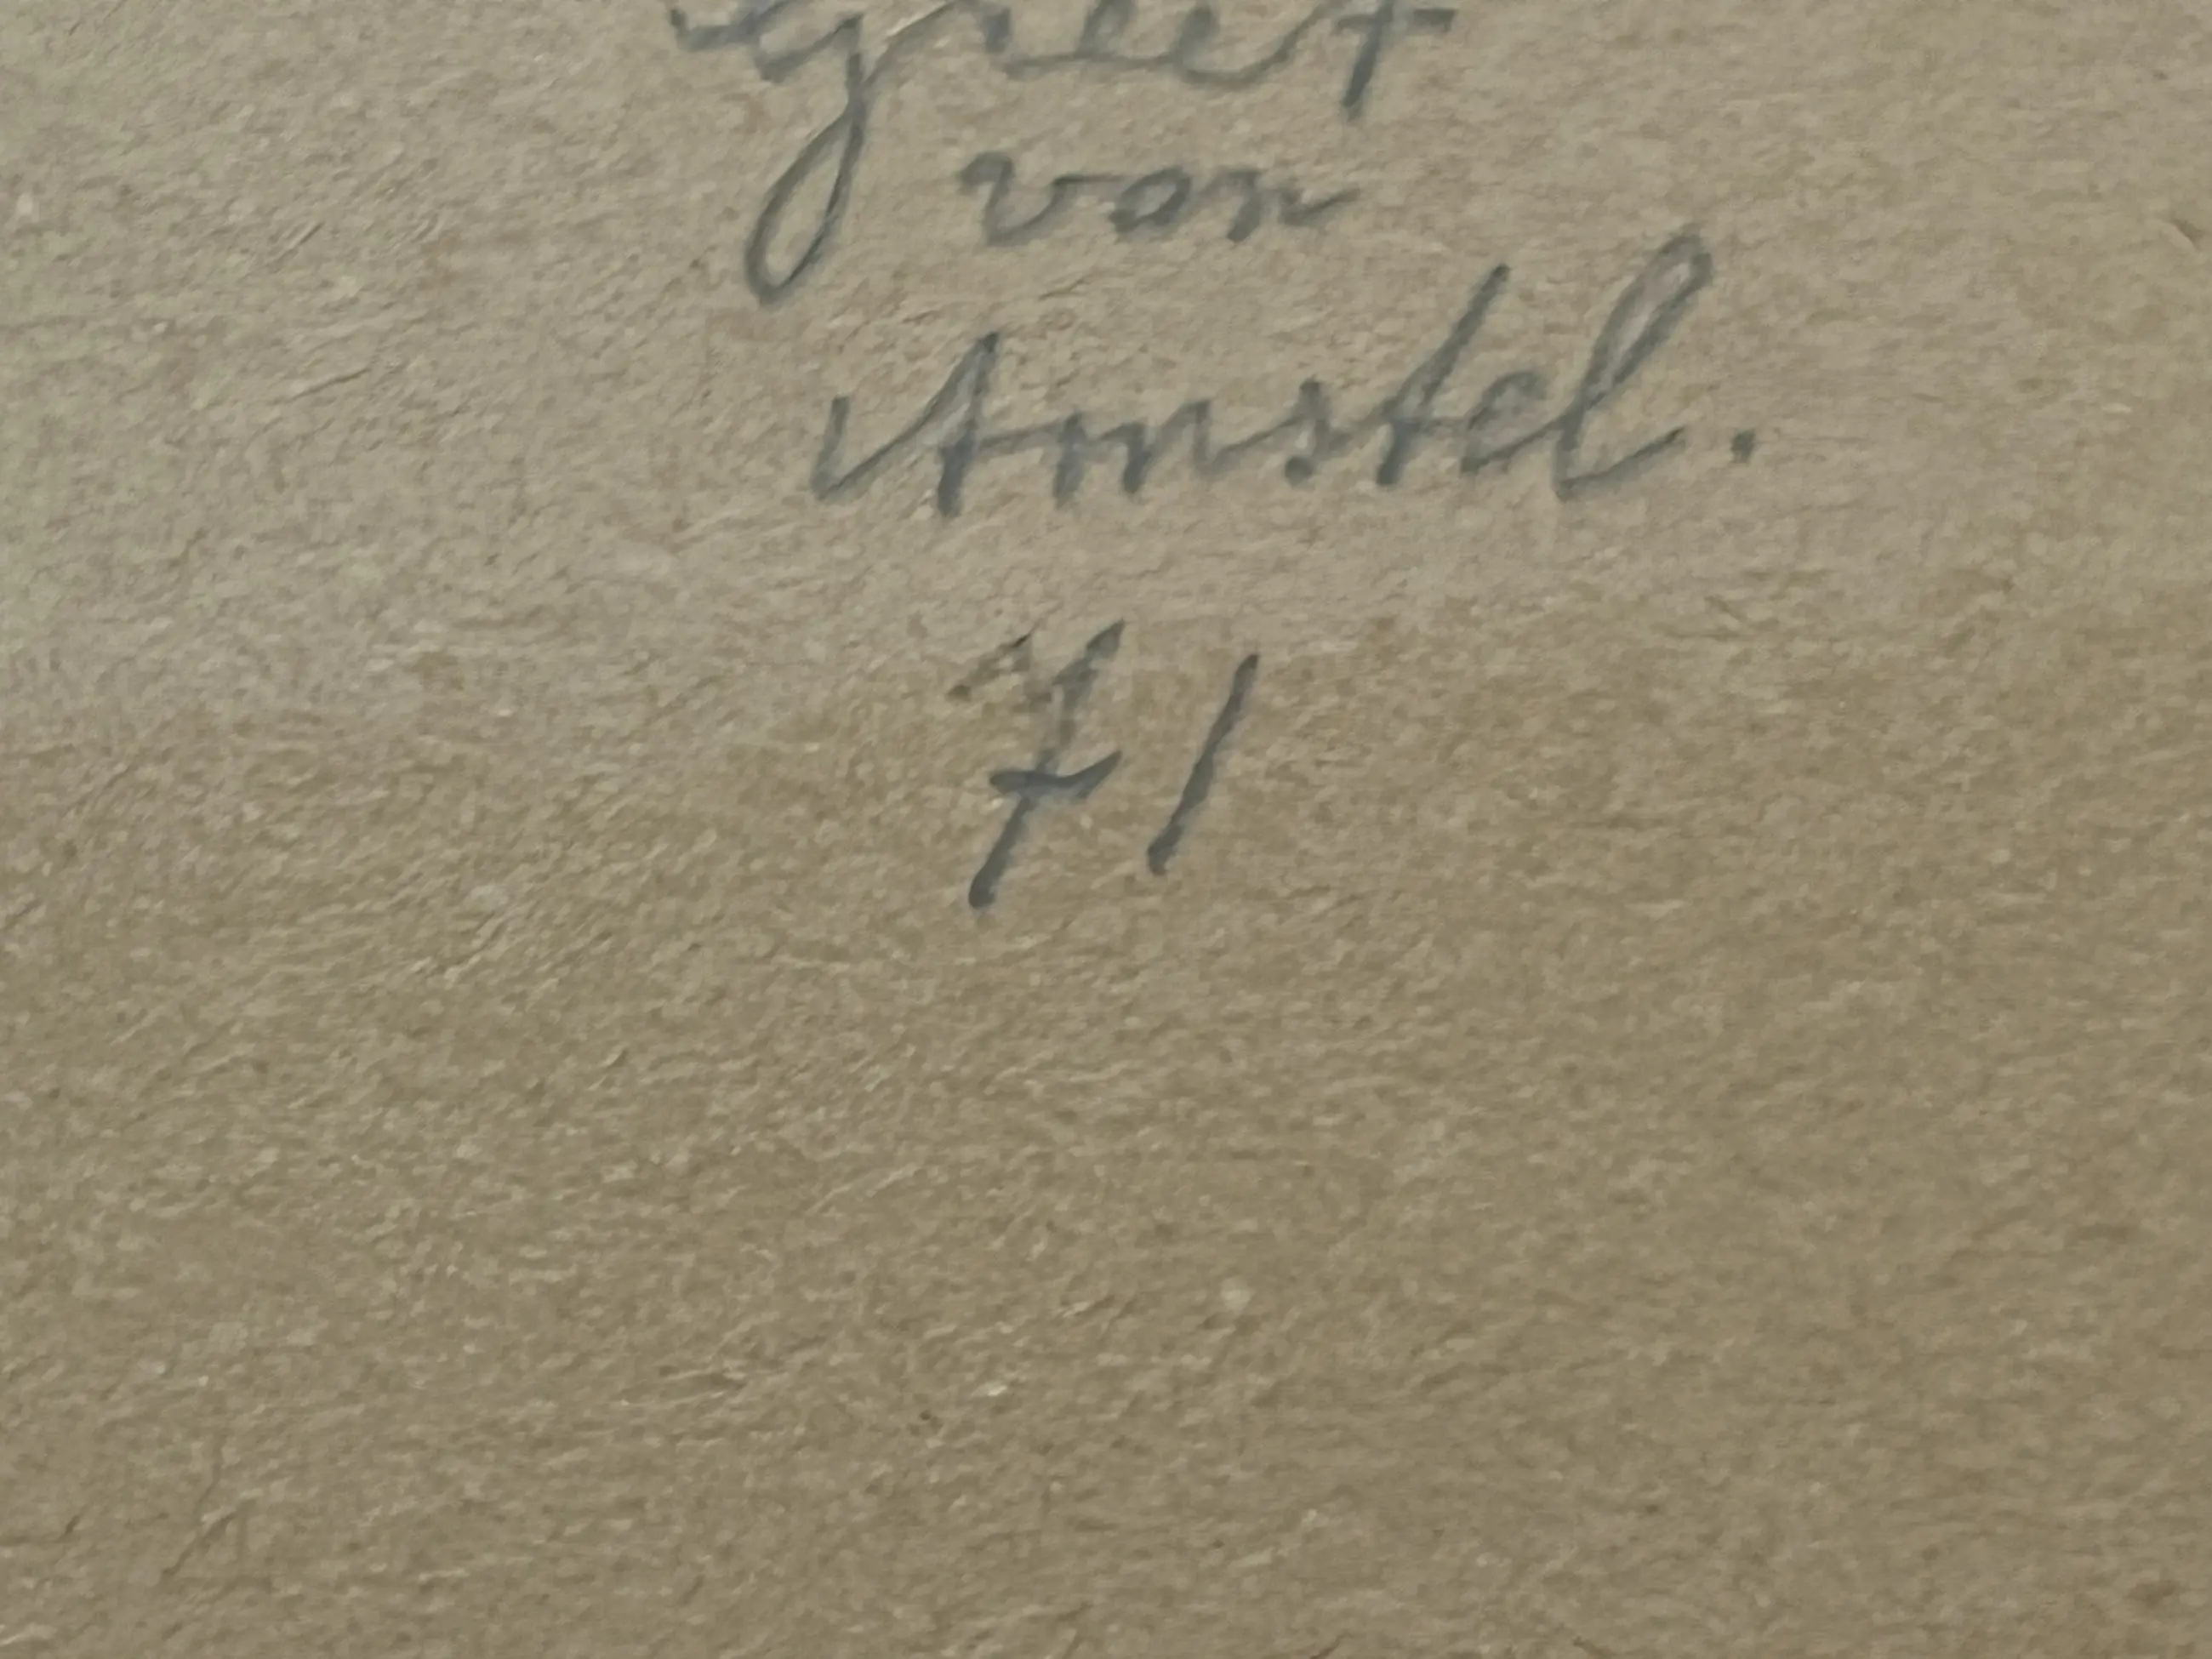 Greet
von
Amstel.
71